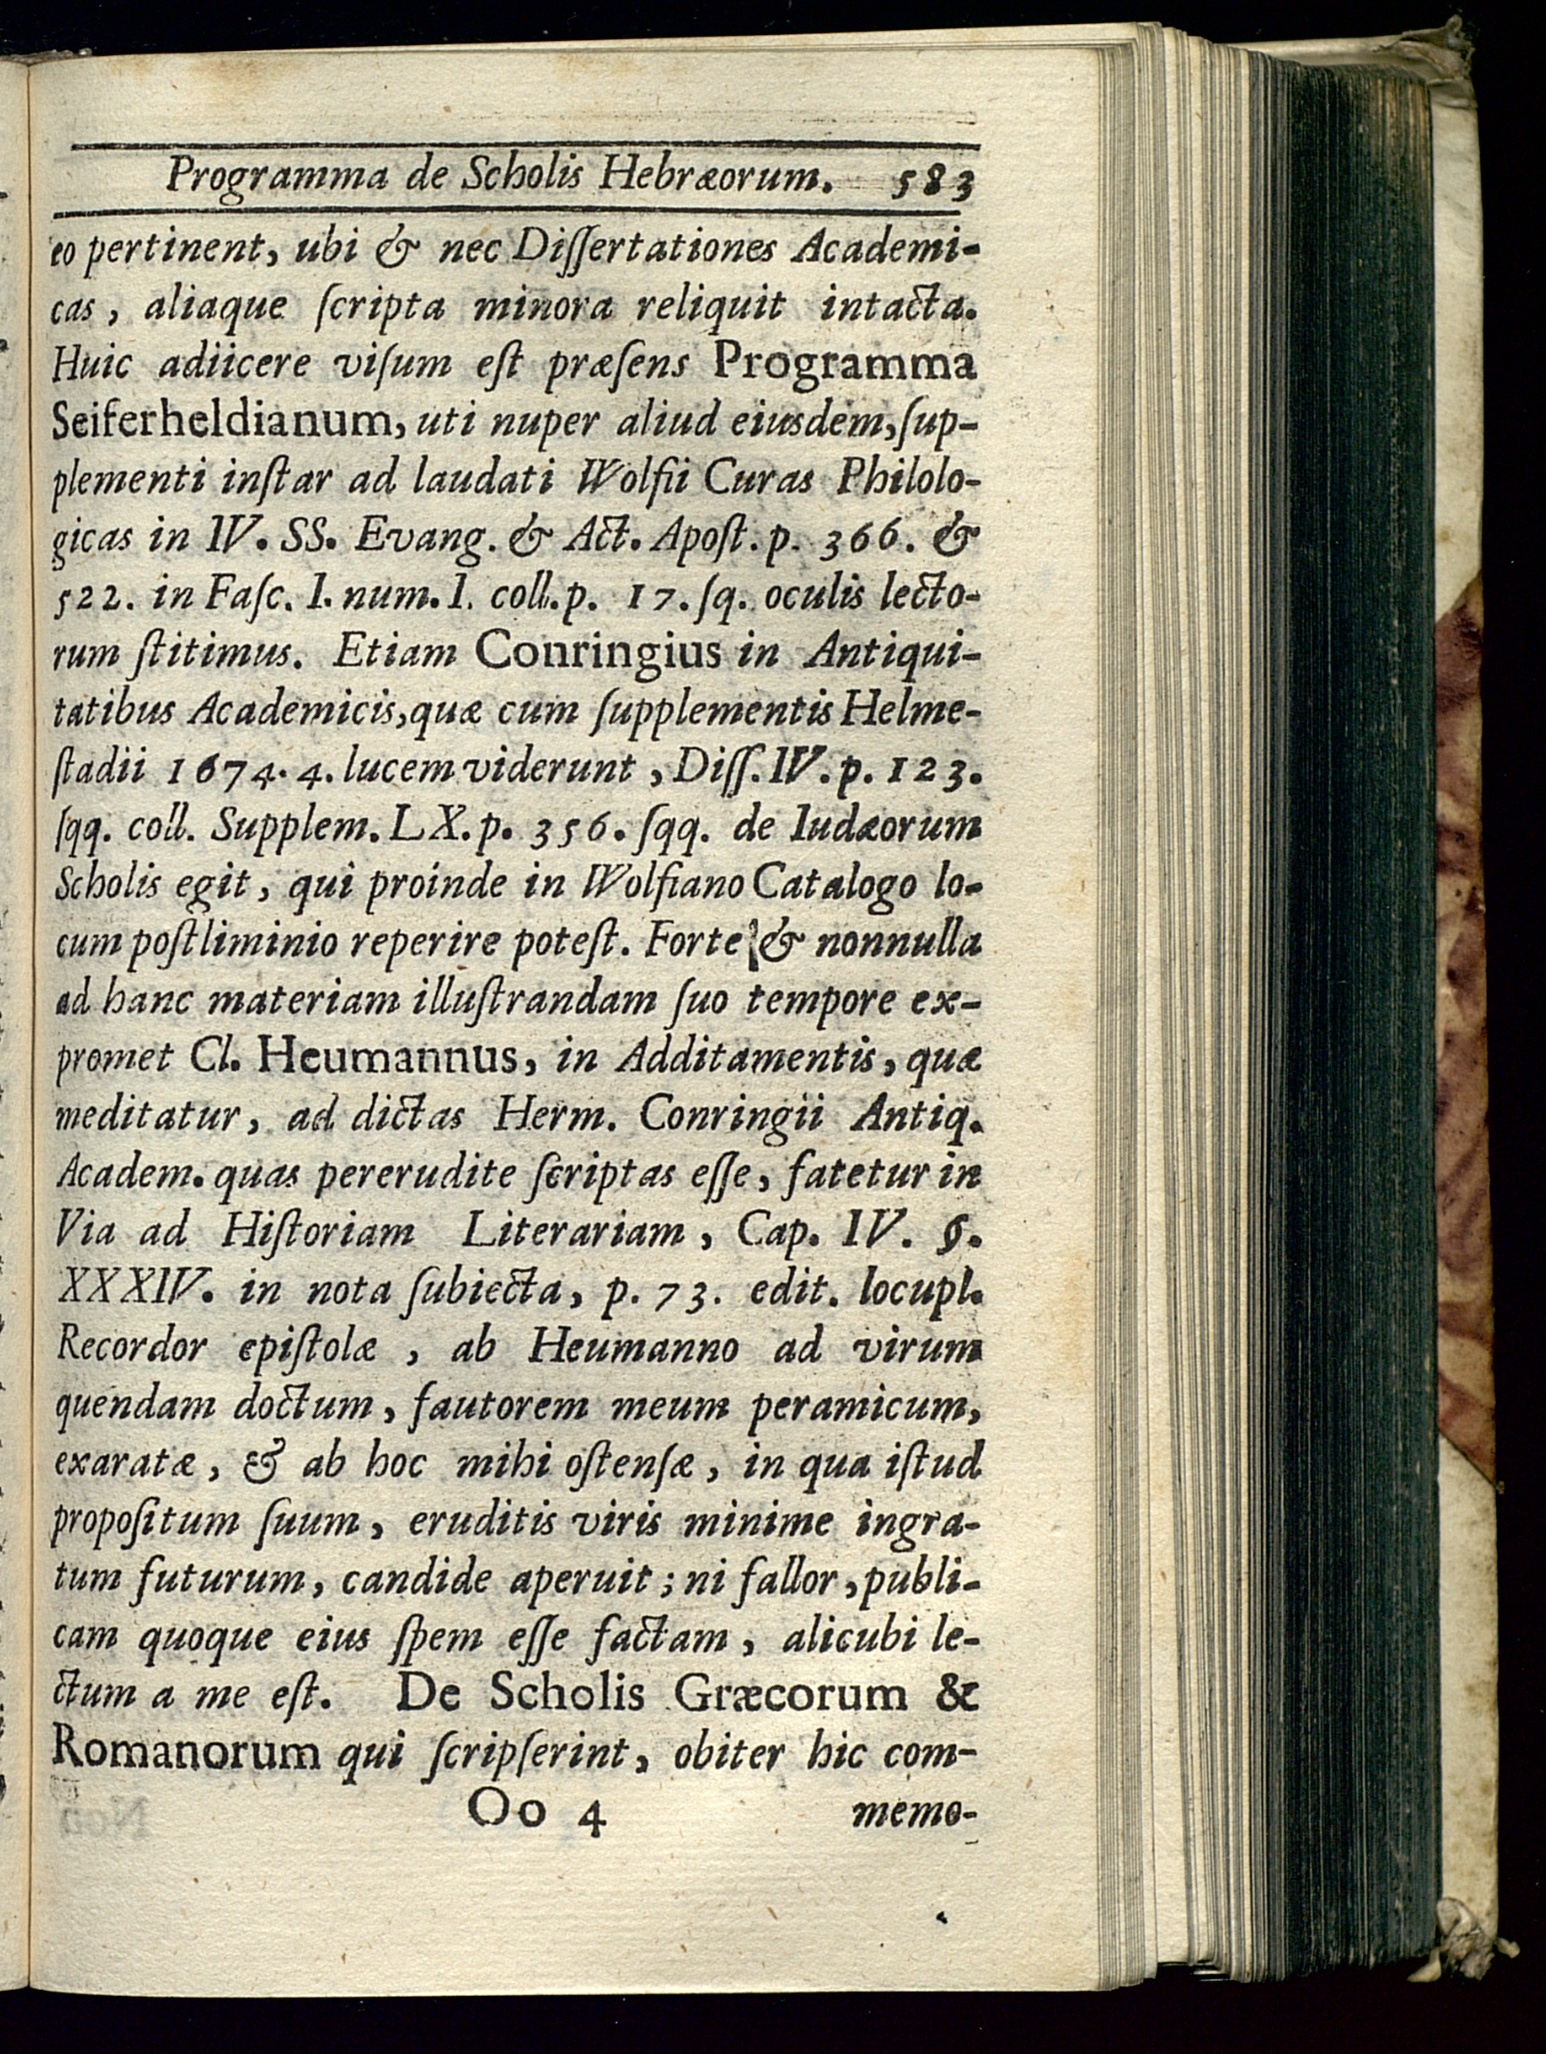 Programma de Scholis Hebræorum. 583
eo pertinent, ubi & nec Diſſertationes Academi-
cas, aliaque ſcripta minora reliquit intacta.
Huic adiicere viſum eſt præſens Programma
Seiferheldianum, uti nuper aliud eiusdem, ſup-
plementi inſtar ad laudati Wolfii Curas Philolo-
gicas in IV. SS. Evang. & Act. Apoſt. p. 366. &
522. in Faſc. I. num. I. coll. p. 17. ſq. oculis lecto-
rum ſtitimus. Etiam Conringius in Antiqui-
tatibus Academicis, quæ cum ſupplementis Helme-
ſtadii 1674. 4. lucem viderunt, Diſſ. IV. p. 123.
ſqq. coll. Supplem. LX. p. 356. ſqq. de Iudæorum
Scholis egit, qui proinde in Wolfiano Catalogo lo-
cum poſtliminio reperire poteſt. Forte & nonnulla
ad hanc materiam illuſtrandam ſuo tempore ex-
promet Cl. Heumannus, in Additamentis, quæ
meditatur, ad dictas Herm. Conringii Antiq.
Academ. quas pererudite ſcriptas eſſe, fatetur in
Via ad Hiſtoriam Literariam, Cap. IV. §.
XXXIV. in nota ſubiecta, p. 73. edit. locupl.
Recordor epiſtolæ, ab Heumanno ad virum
quendam doctum, fautorem meum peramicum,
exaratæ, & ab hoc mihi oſtenſæ, in qua iſtud
propoſitum ſuum, eruditis viris minime ingra-
tum futurum, candide aperuit; ni fallor, publi-
cam quoque eius ſpem eſſe factam, alicubi le-
ctum a me eſt. De Scholis Græcorum &
Romanorum qui ſcripſerint, obiter hic com-
Oo 4 memo-